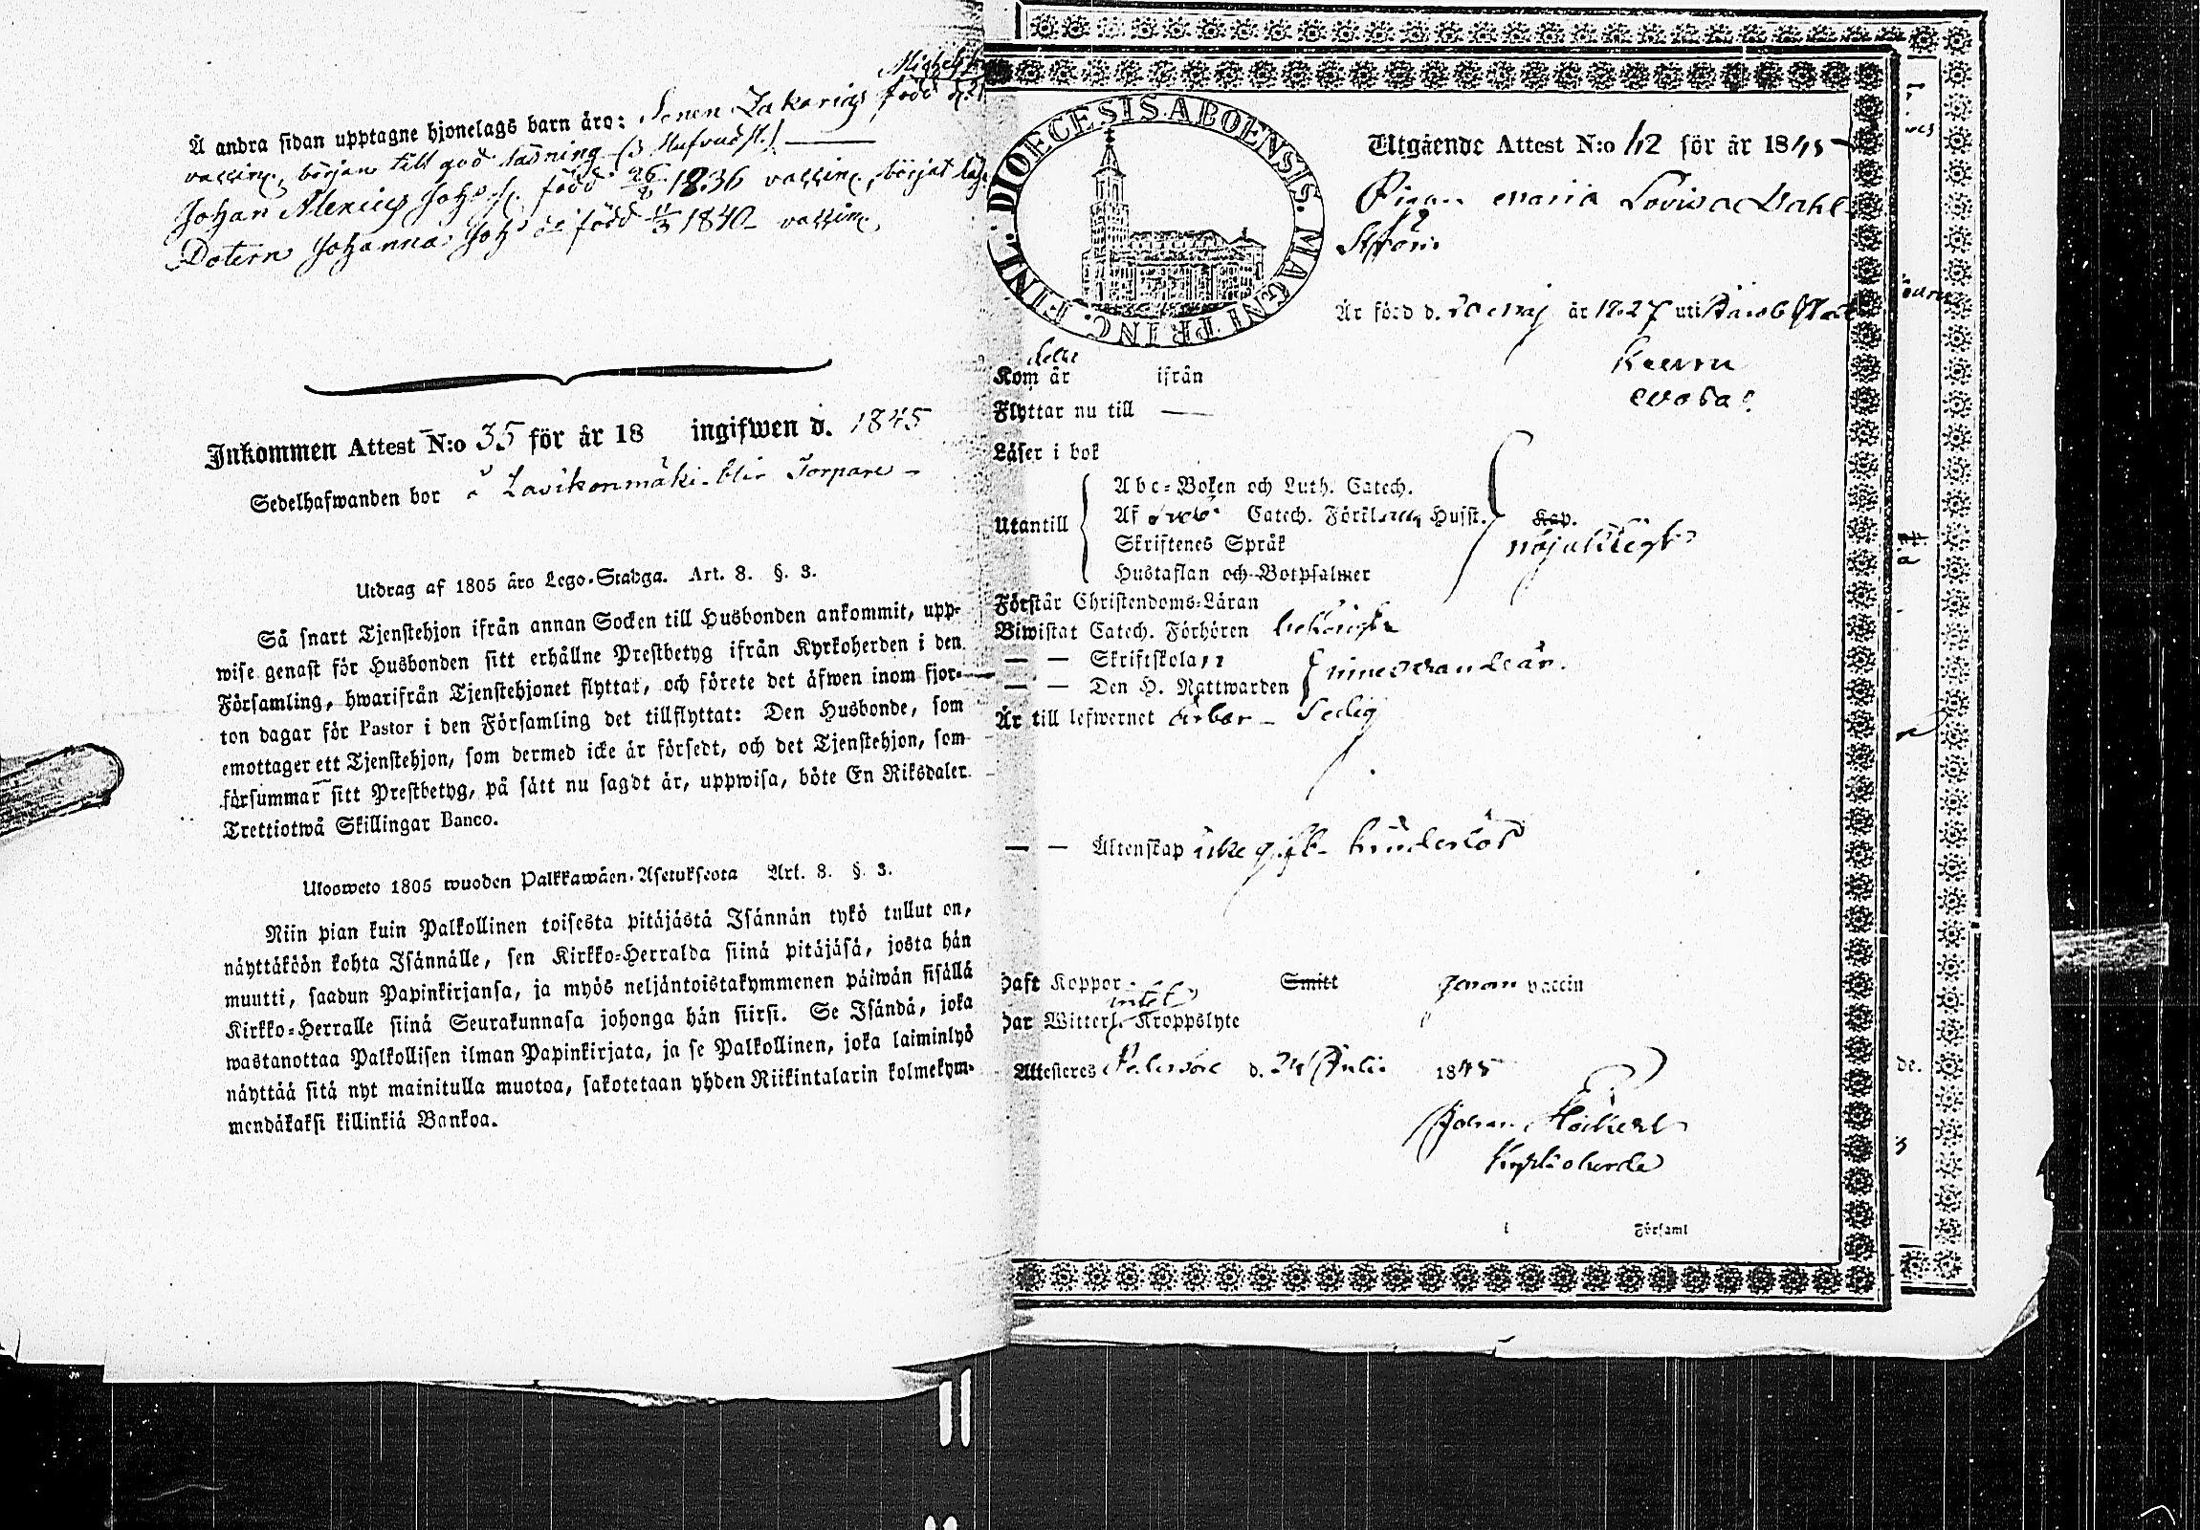 Å andra sidan upptagne hjonelags barn äro: Sonen Zakarias född
vaccin, början till god läsning (3 Hufvudst.)
Johan Alexius Johs s. född 26/8 1836 vaccin, börjat läs
Dotern Johanna Johs dr född 11/3 1840 vaccin,
Inkommen Attest N:o 35 för år 18 ingifwen d. 1845
Sedelhafwanden bor å Lavikonmäki blir Torpare
Utdrag af 1805 års Lego-Stadga. Art. 8. §. 3.
Så snart Tjenstehjon ifrån annan Socken till Husbonden ankommit, upp-
wise genast för Husbonden sitt erhållne Prestbetyg ifrån Kyrkoherden i den
Församling, hwarifrån Tjenstehjonet flyttat, och förete det äfwen inom fjor-
ton dagar för Pastor i den Församling det tillflyttat: Den Husbonde, som
emottager ett Tjenstehjon, som dermed icke är försedt, och det Tjenstehjon, som
försummar sitt Prestbetyg, på sätt nu sagdt är, uppwisa, böte En Riksdaler
Trettiotwå Skillingar Banco.
Ulosweto 1805 wuoden Palkkawäen-Asetuksesta Art. 8. §. 3.
Niin pian kuin Palkollinen toisesta pitäjästä Isännän tykö tullut on,
näyttäköön kohta Isännälle, sen Kirkko-Herralda siinä pitäjäsä, josta hän
muutti, saadun Papinkirjansa, ja myös neljäntoistakymmenen päiwän sisällä
Kirkko-Herralle siinä Seurakunnasa johonga hän siirsi. Se Isändä, joka
wastanottaa Palkollisen ilman Papinkirjata, ja se Palkollinen, joka laiminlyö
näyttää sitä nyt mainitulla muotoa, sakotetaan yhden Riikintalarin kolmekym-
mendäkaksi killinkiä Bankoa.
DIOECESIS ABOENSIS. MAGNI PRINC. FINL.
Utgående Attest N:o 42 för år 1845
Pigan Maria Lovisa Dahl-
ström
Är född d. 20 Maj år 1827 uti Jacobstad
Kom år ifrån
Flyttar nu till —
Läser i bok
Utantill
Abc-Boken och Luth. Catech.
Af Sveb. Catech. Förkl. Husst. Kap.
Skriftenes Språk nöjaktigt
Hustaflan och Botpsalmer
Förstår Christendoms-Läran
Biwistat Catech. Förhören behörigt
— — Skriftskolan
— — Den H. Nattwarden
Är till lefwernet ärbar - sedig
— — Äktenskap icke gift hinderlös
Haft Koppor Smitt genom vaccin
intet
Har Witterl. Kroppslyte
Attesteres Pedersöre d. 24 Juli 1845
Johan
Kyrkoherde
i Församl